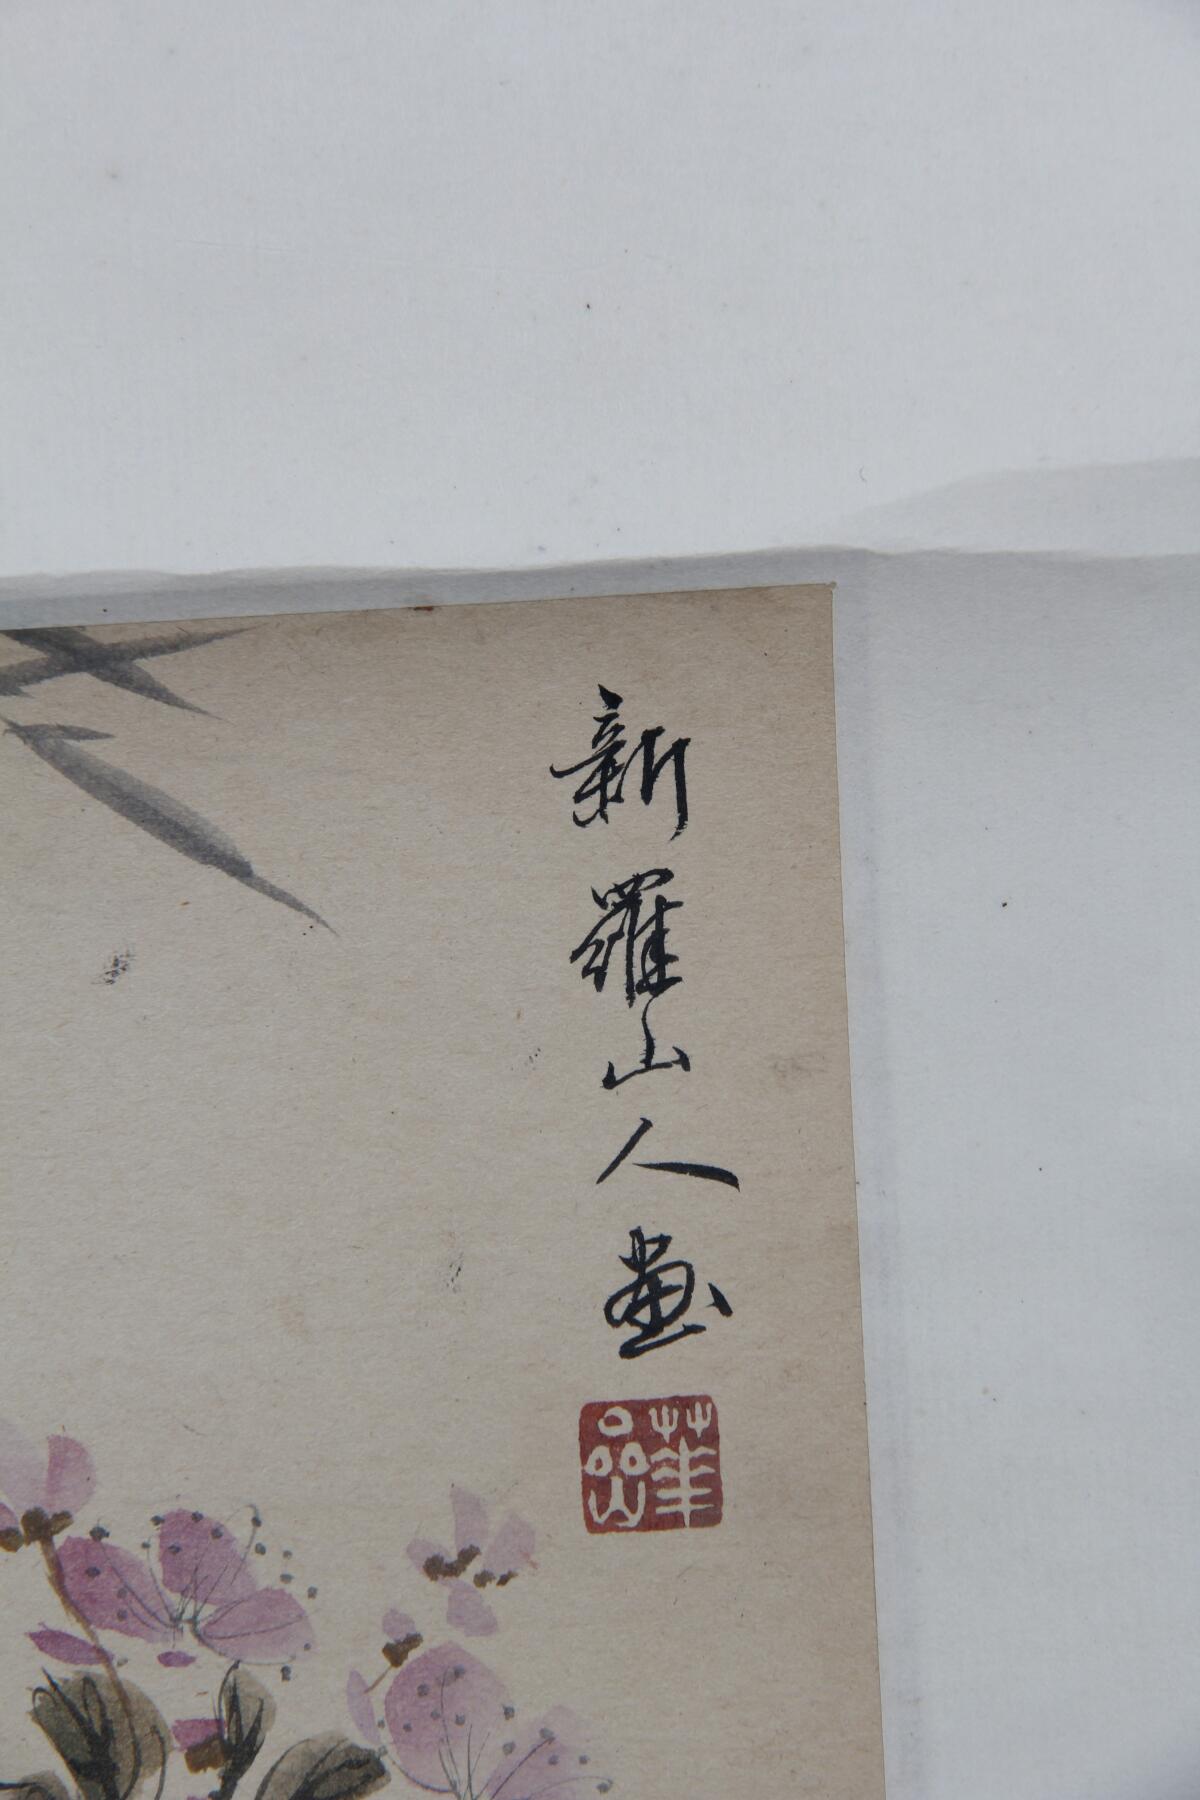 新羅山人画
華嵒